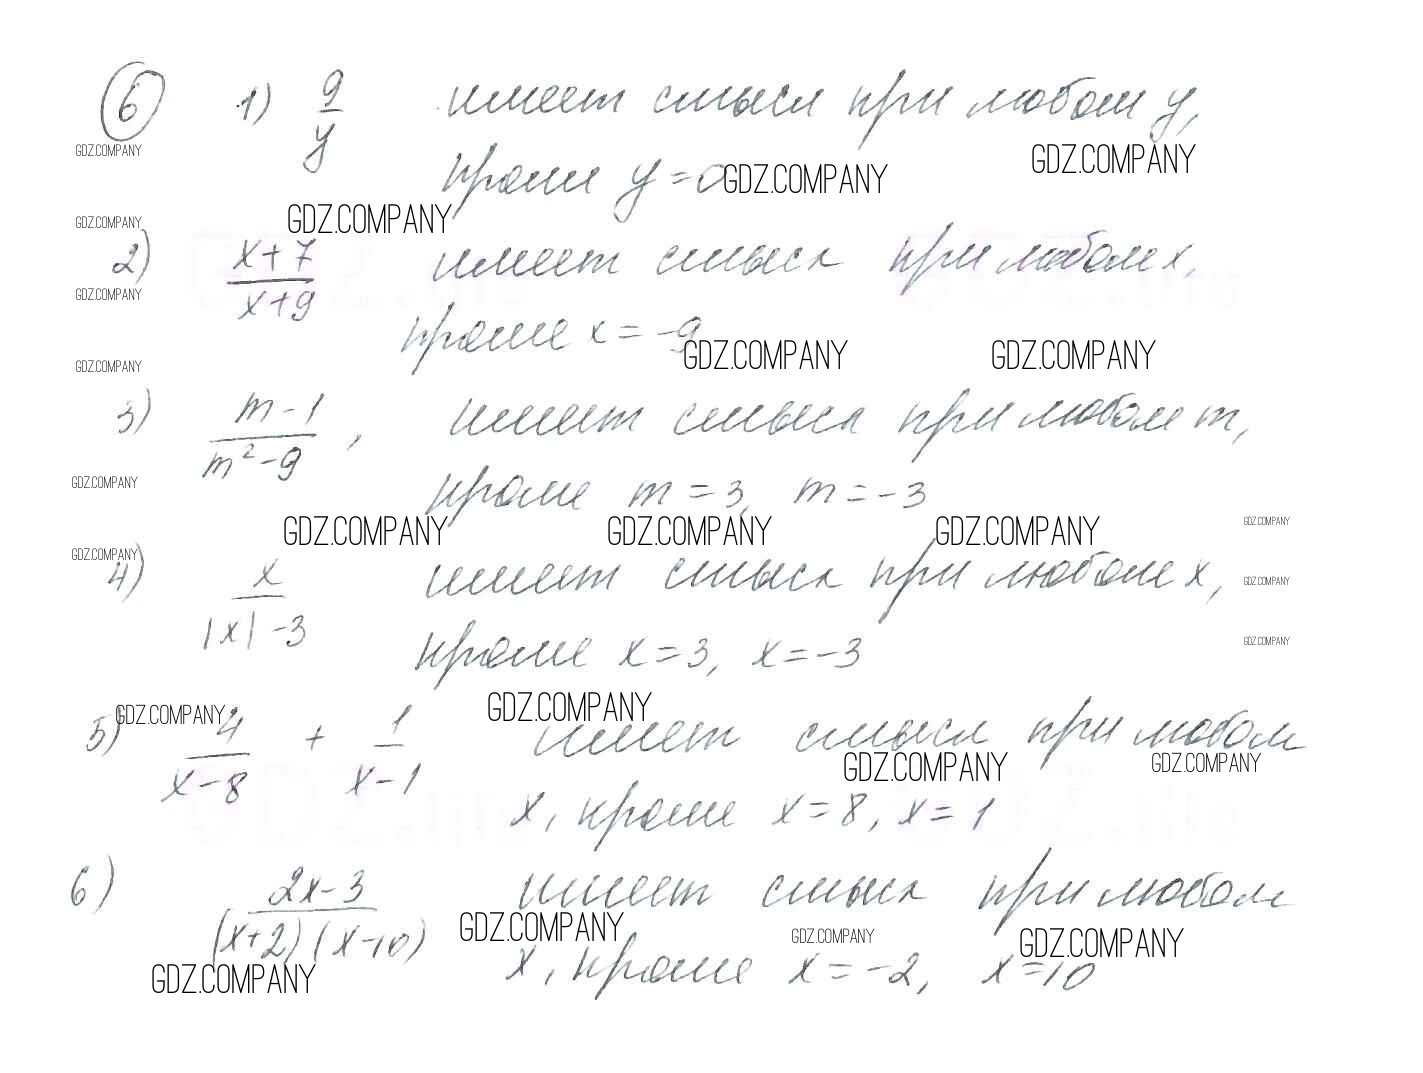 6 1) 9/y имеет смысл при любом y,
GDZ.COMPANY
GDZ.COMPANY
кроме y = 0
GDZ.COMPANY
GDZ.COMPANY
GDZ.COMPANY
2) x+7/x+9 имеет смысл при любом x,
GDZ.COMPANY
кроме x = -9
GDZ.COMPANY
GDZ.COMPANY
GDZ.COMPANY
3) m-1/m²-9, имеет смысл при любом m,
GDZ.COMPANY
кроме m = 3, m = -3
GDZ.COMPANY
GDZ.COMPANY
GDZ.COMPANY
GDZ.COMPANY
GDZ.COMPANY
4) x/|x|-3 имеет смысл при любом x,
GDZ.COMPANY
GDZ.COMPANY
кроме x = 3, x = -3
GDZ.COMPANY
GDZ.COMPANY
5) 4/x-8 + 1/x-1 имеет смысл при любом
GDZ.COMPANY
GDZ.COMPANY
x, кроме x = 8, x = 1
6) 2x-3/(x+2)(x-10) имеет смысл при любом
GDZ.COMPANY
GDZ.COMPANY
GDZ.COMPANY
x, кроме x = -2, x = 10
GDZ.COMPANY